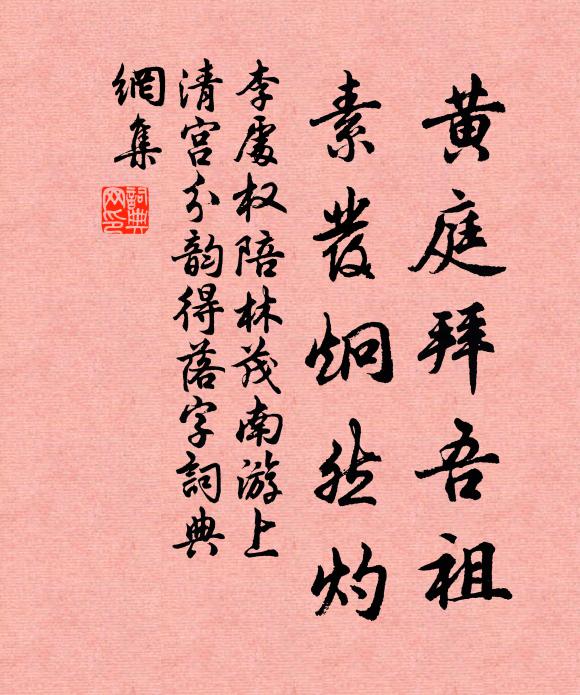 黄庭拜吾祖
素发炯然灼
李處权陪林茂南游上
清宫分韵得落字詞典
網集
詞典
网印